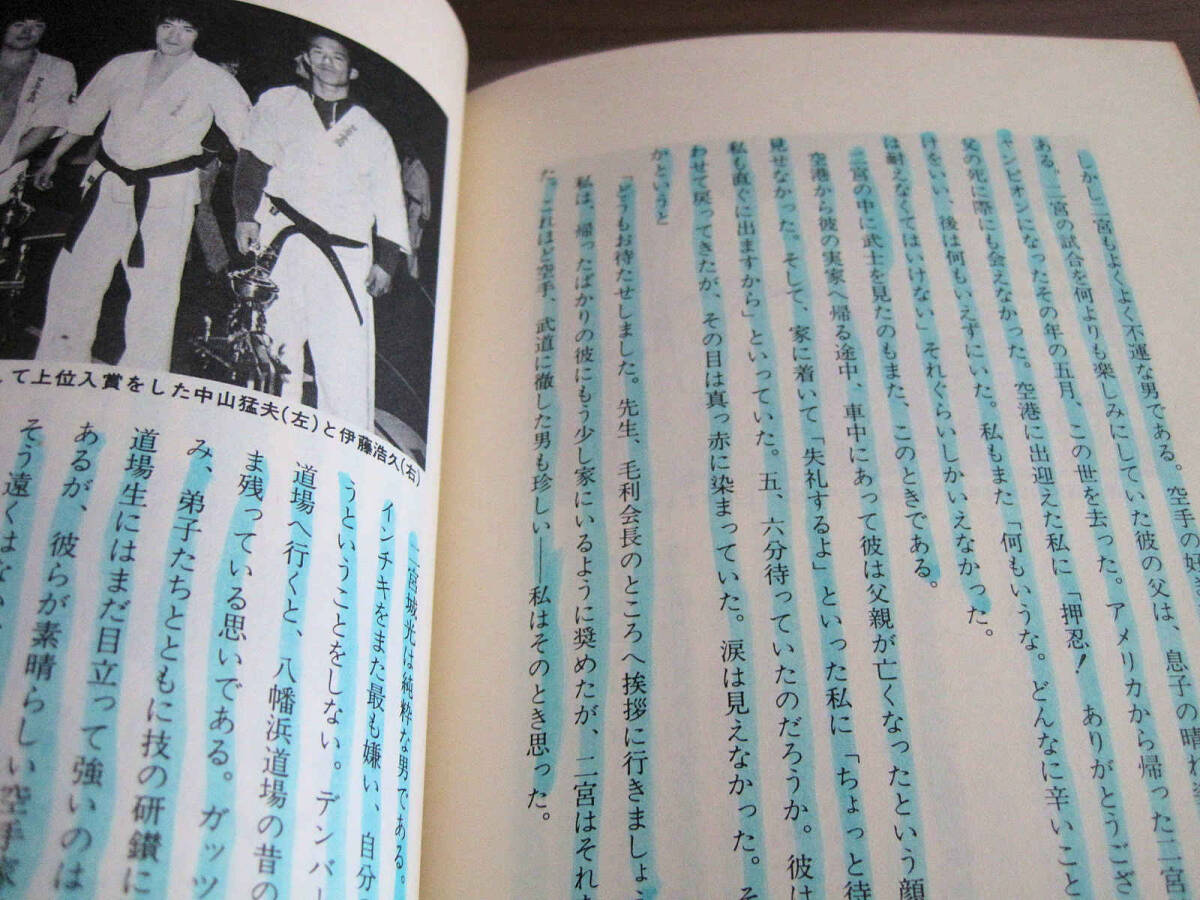 しかし二宮もよくよく不運な男である。空手の好
ある。二宮の試合を何よりも楽しみにしていた彼の父は、息子の晴れ姿
ャンピオンになったその年の五月、この世を去った。アメリカから帰った二宮
父の死に際にも会えなかった。空港に出迎えた私に「押忍！　ありがとうござ
けをいい、後は何もいえずにいた。私もまた「何もいうな。どんなに辛いこと
は耐えなくてはいけない」それぐらいしかいえなかった。
二宮の中に武士を見たのもまた、このときである。
空港から彼の実家へ帰る途中、車中にあって彼は父親が亡くなったという顔
見せなかった。そして、家に着いて「失礼するよ」といった私に「ちょっと待
私も直ぐに出ますから」といっていた。五、六分待っていたのだろうか。彼は
わせて戻ってきたが、その目は真っ赤に染まっていた。涙は見えなかった。そ
かというと
「どうもお待たせしました。先生、毛利会長のところへ挨拶に行きましょ
私は、帰ったばかりの彼にもう少し家にいるように奨めたが、二宮はそれ
た。これほど空手、武道に徹した男も珍しい――私はそのとき思った。
して上位入賞をした中山猛夫(左)と伊藤浩久(右)
二宮城光は純粋な男である。
インチキをまた最も嫌い、自分
うということをしない。デンバー
道場へ行くと、八幡浜道場の昔の
ま残っている思いである。ガッツ
み、弟子たちとともに技の研鑚に
道場生にはまだ目立って強いのは
あるが、彼らが素晴らしい空手家
そう遠くはない